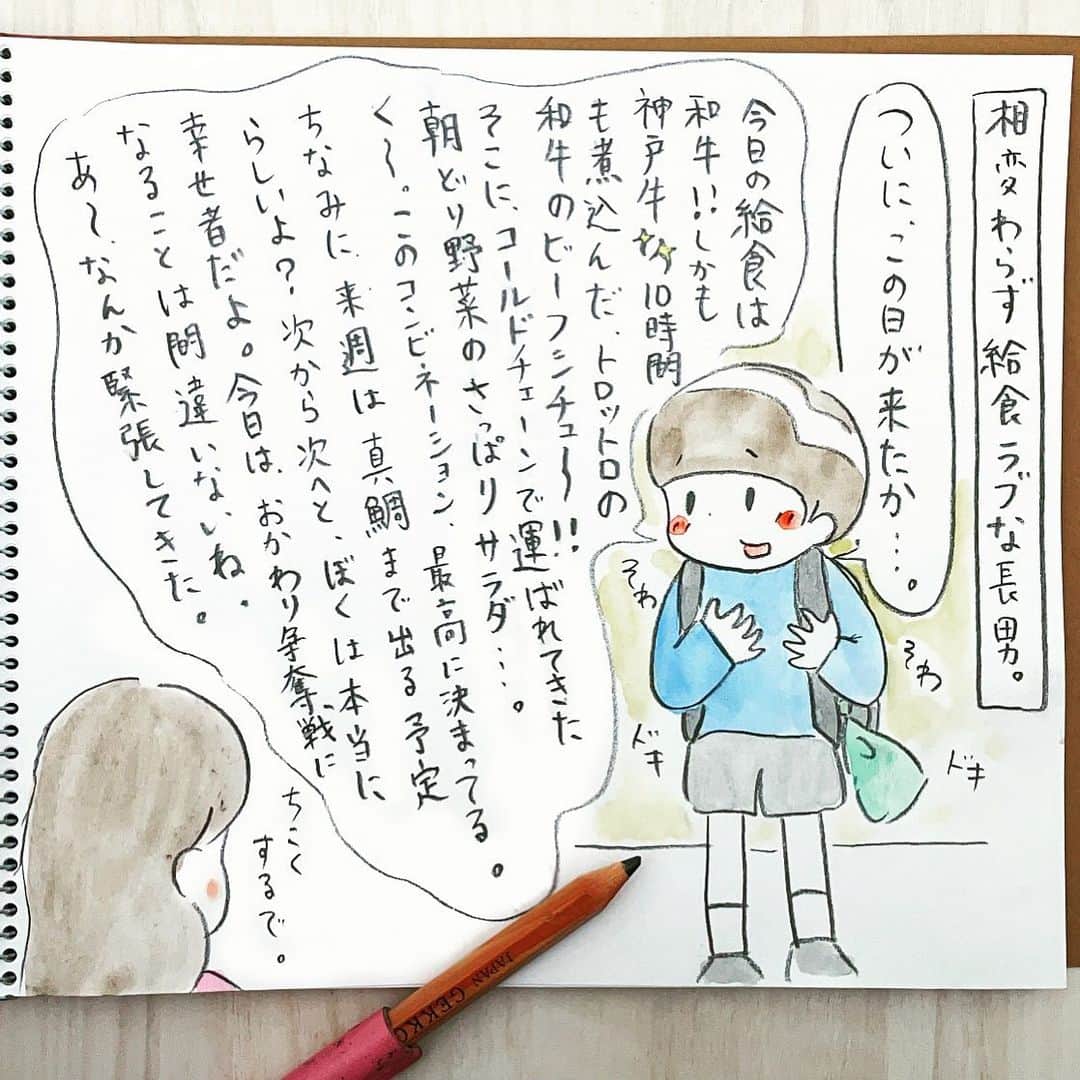 相変わらず給食ラブな長男。
ついに、この日が来たか…。
今日の給食は
和牛!!しかも
神戸牛 10時間
も煮込んだ、トロットロの
和牛のビーフシチュ〜!!
そこに、コールドチェーンで運ばれてきた
朝どり野菜のさっぱりサラダ…。
く〜。このコンビネーション、最高に決まってる。
ちなみに、来週は真鯛まで出る予定
らしいよ?次から次へと、ぼくは本当に
幸せ者だよ。今日は、おかわり争奪戦に
なることは間違いないね。
あ〜、なんか緊張してきた。
そわ
そわ
ドキ
ドキ
ちこく
するで。
JAPAN GEKKO